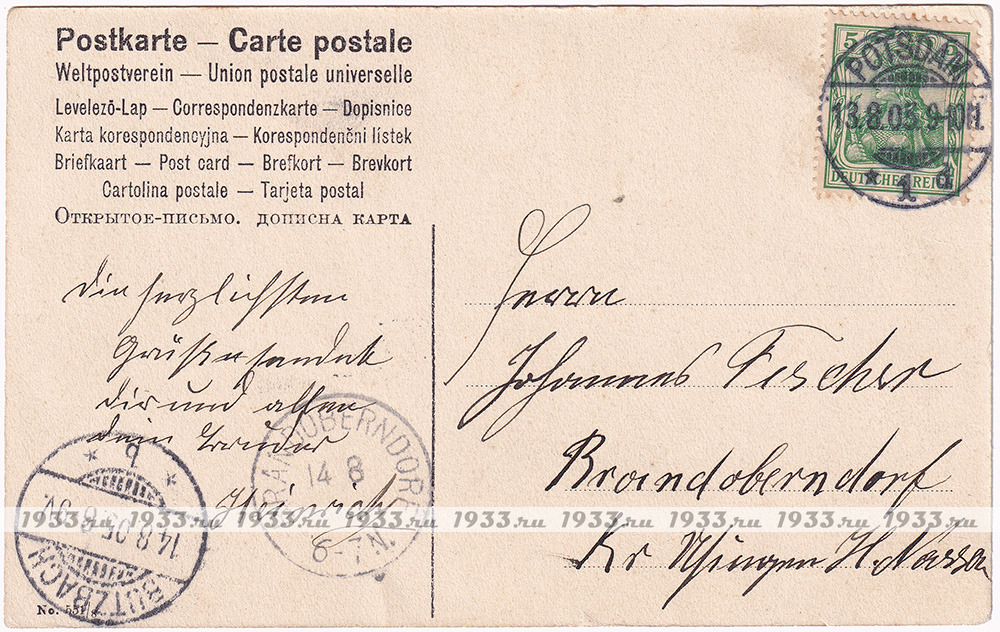 Postkarte – Carte postale
Weltpostverein — Union postale universelle
Levelező-Lap — Correspondenzkarte — Dopisnice
Karta korespondencyjna — Korespondenční lístek
Briefkaart — Post card — Brefkort — Brevkort
Cartolina postale — Tarjeta postal
Открытое-письмо. дописна карта
5 5
POTSDAM
13.8.05. 9-10N.
DEUTSCHES REICH
* 1 d
die herzlichsten
Grüße sendet
dir und allen
dein Bruder
Heinrich
Herrn
Johannes Fischer
Brandoberndorf
Kr Usingen H. Nassau
BRANDOBERNDORF
14 8
6-7N.
* b *
14.8.05.
BUTZBACH
1933.ru 1933.ru 1933.ru 1933.ru 1933.ru 1933.ru 1933.ru 1933.ru
No.